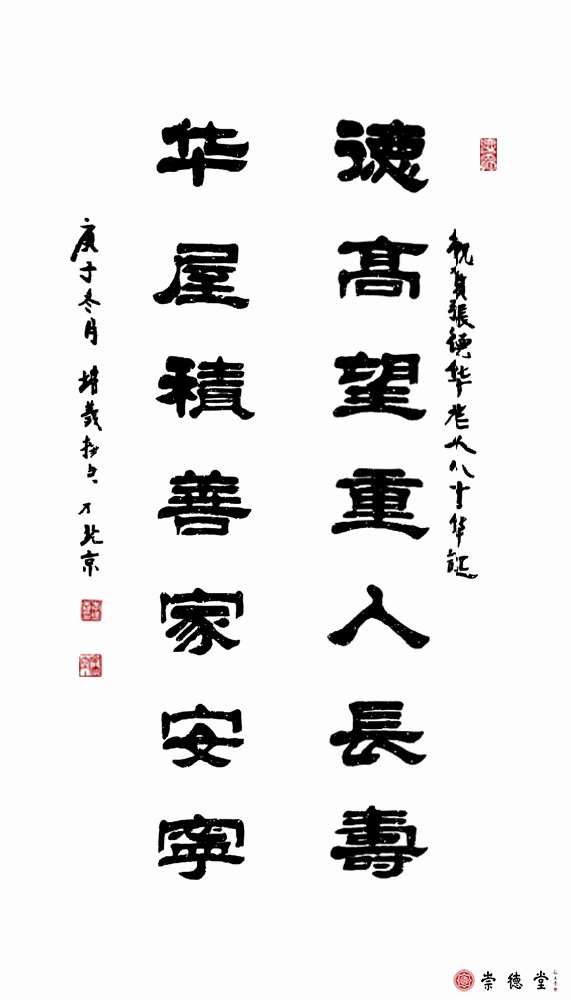 祝賀張德华老人八十华誕
德高望重人長壽
华屋積善家安寧
庚子冬月 培義撰句 于北京
崇德堂